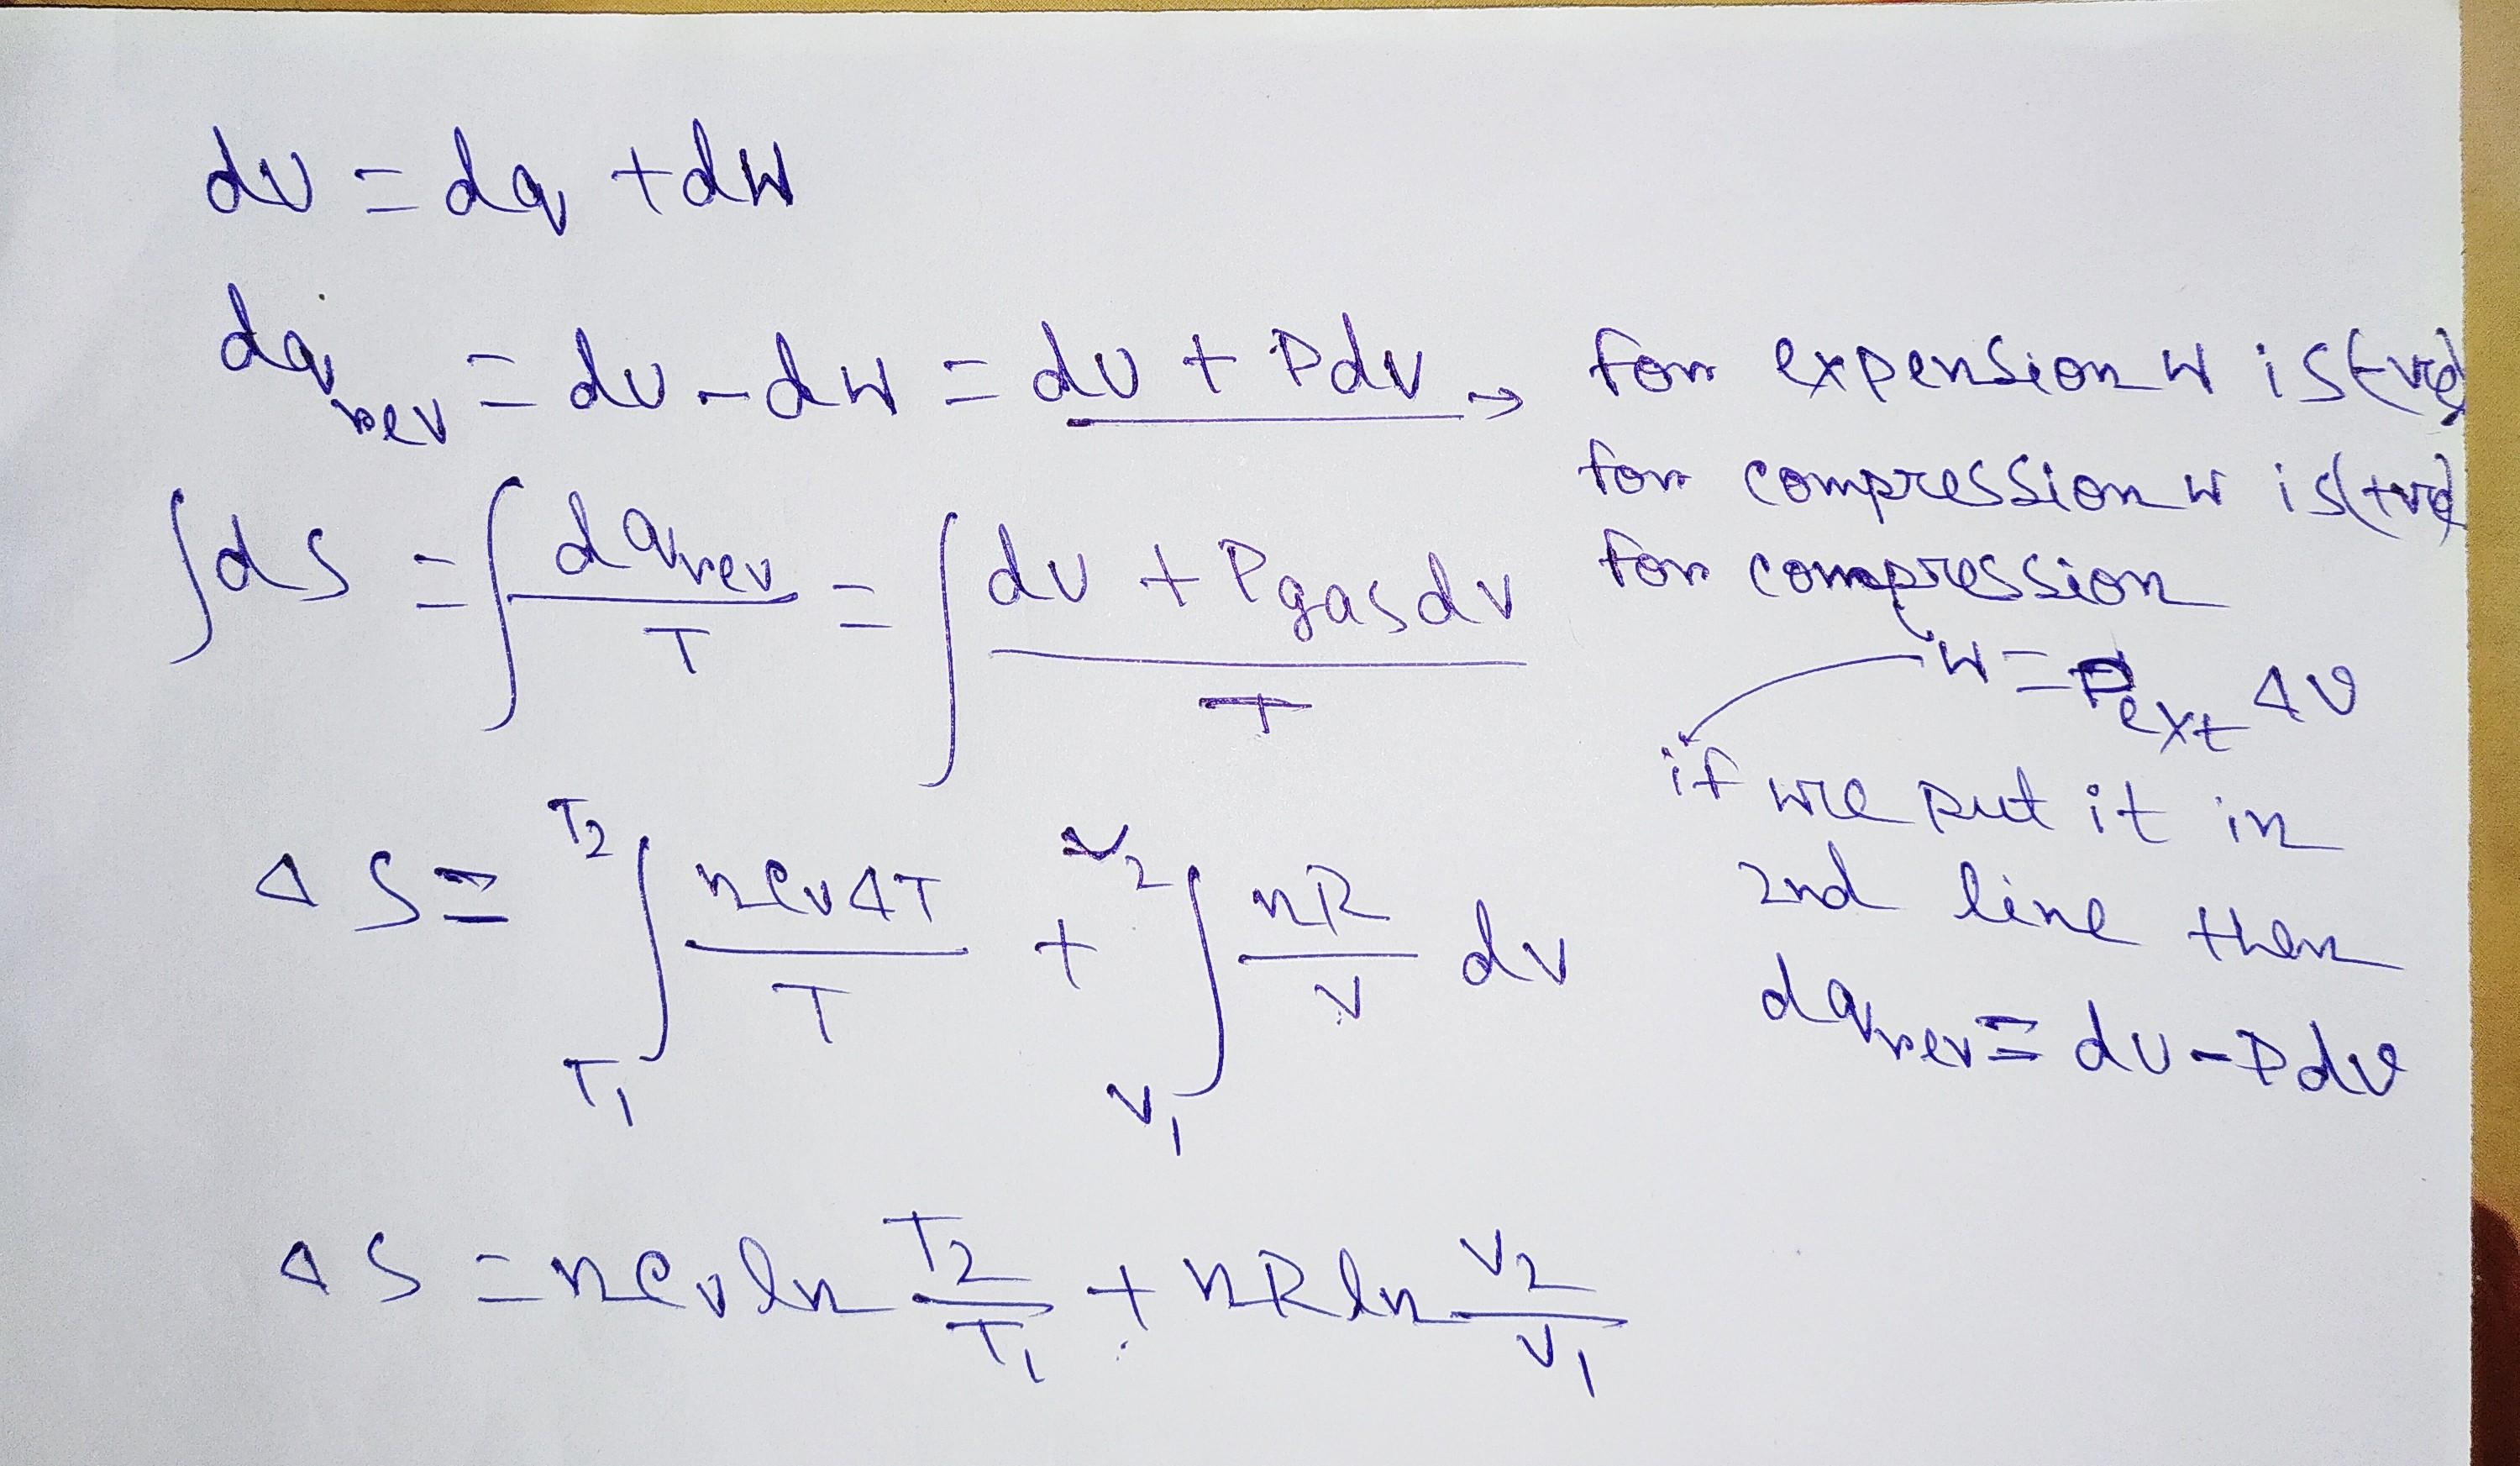 dU = dq + dW
dq rev = dU - dW = dU + Pdv → for expension W is (-ve)
for compression W is (+ve)
∫dS = ∫ dqrev / T = ∫ dU + Pgas dv / T
for compression
W = Pext ΔV
if we put it in
2nd line then
dqrev = dU - Pdv
ΔS = T2 ∫ T1 nCvΔT / T + V2 ∫ V1 nR / V dv
ΔS = nCv ln T2 / T1 + nR ln V2 / V1